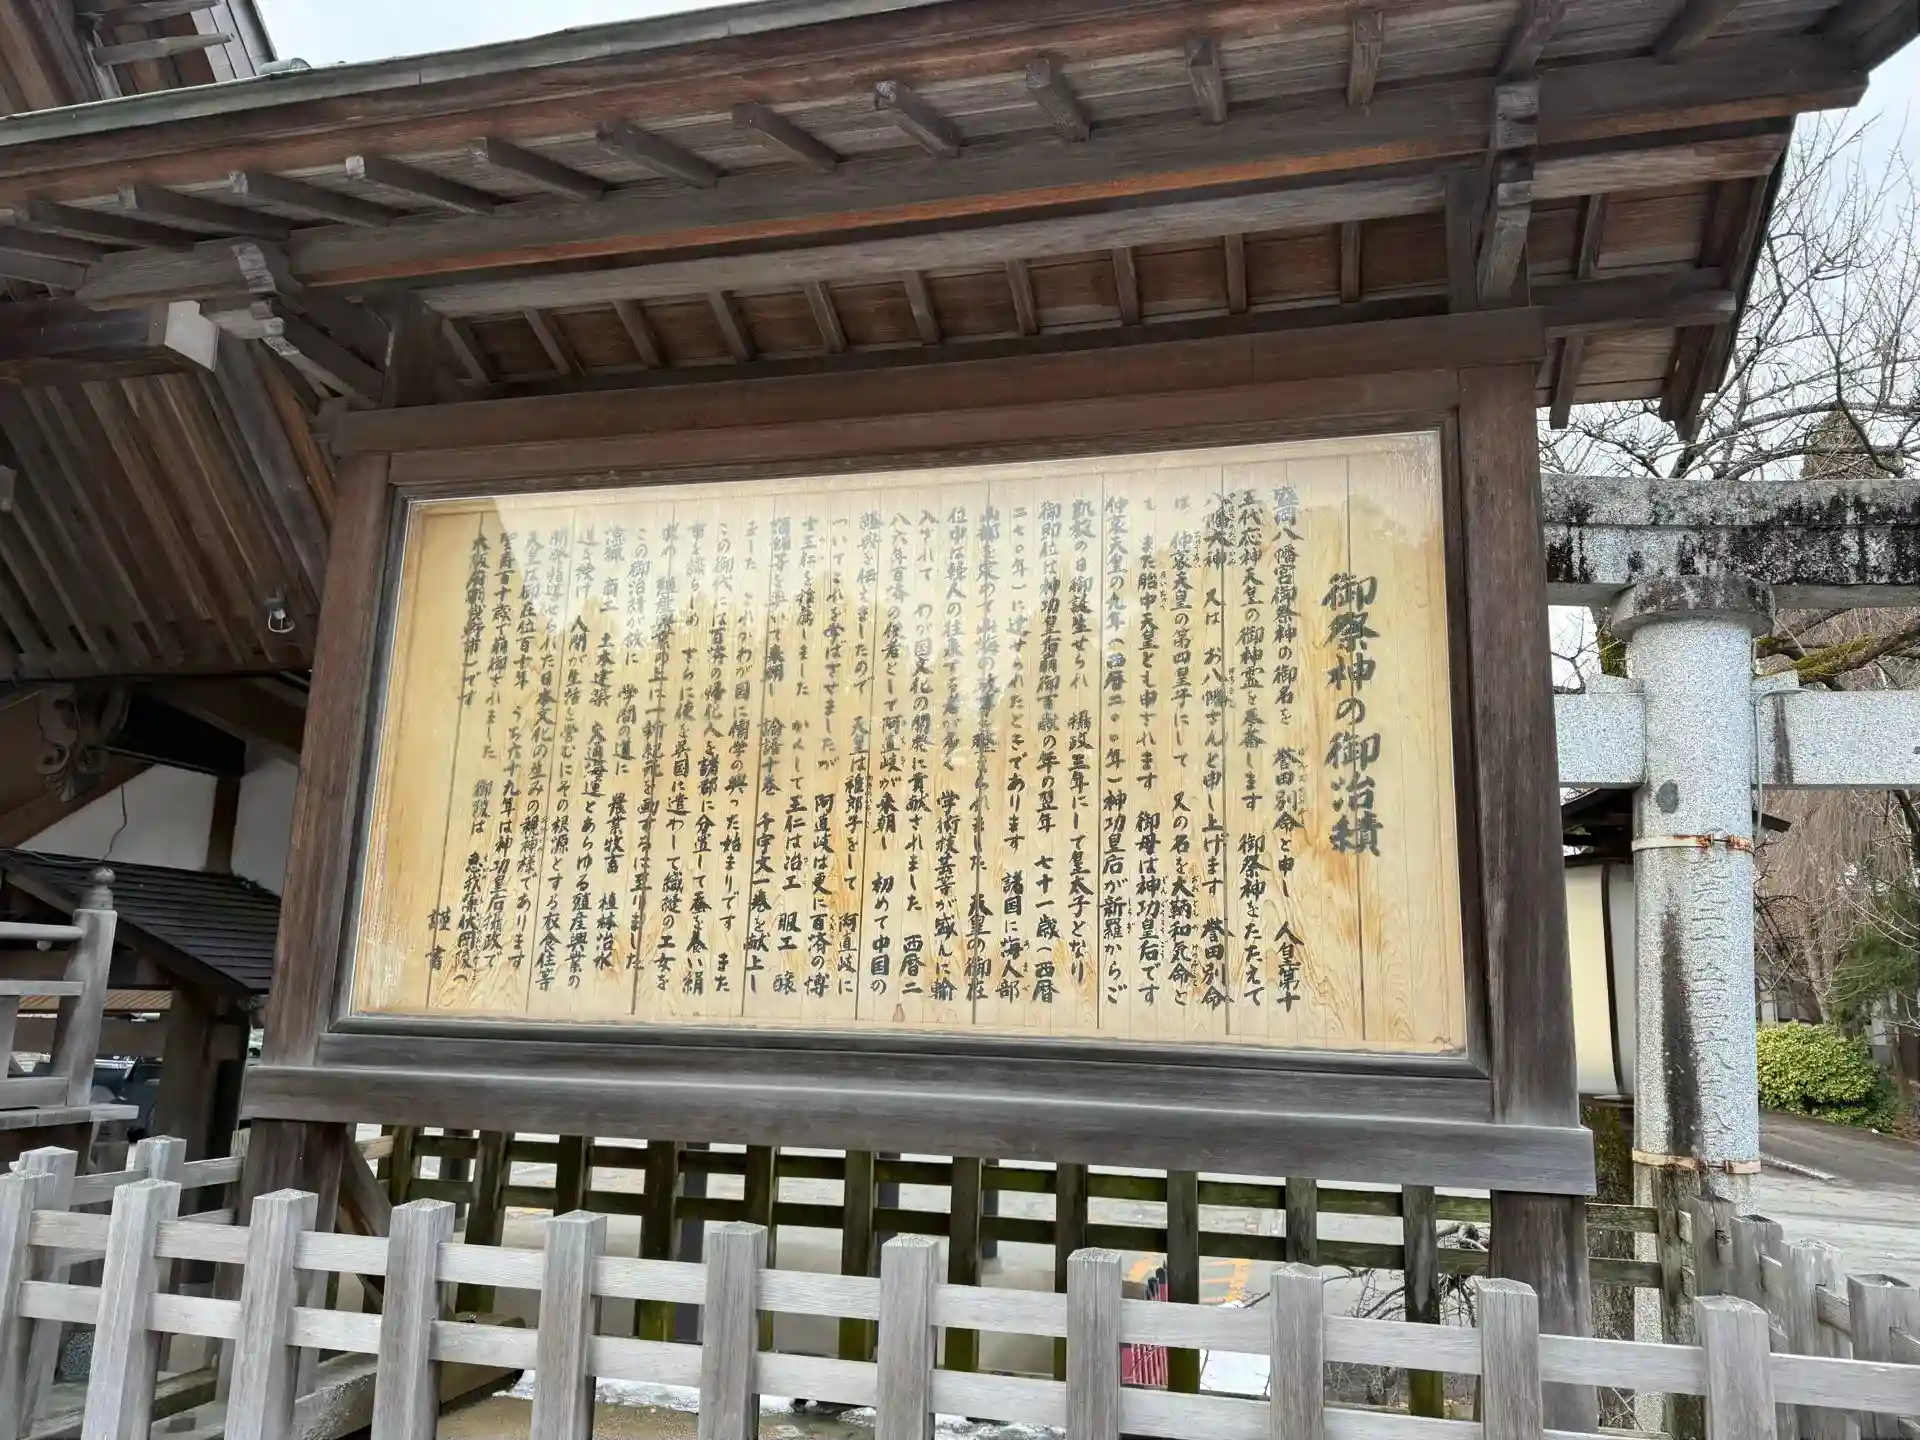 御祭神の御治績
盛岡八幡宮御祭神の御名を 誉田別命と申し 人皇第十
五代応神天皇の御神霊を奉斎します 御祭神をたたえて
八幡大神 又は お八幡さんと申し上げます 誉田別命
は 仲哀天皇の第四皇子にして 又の名を大鞆和気命と
も また胎中天皇とも申されます 御母は神功皇后です
仲哀天皇の九年(西暦二〇〇年)神功皇后が新羅からご
凱旋の日御誕生せられ 摂政三年にして皇太子となり
御即位は神功皇后崩御の年の翌年 七十一歳(西暦
二七〇年)に達せられたときであります 諸国に海人部
山部を定めて山海の
位中は韓人の往来する者が多く 学術技芸等が盛んに輸
入されて わが国文化の開発に貢献されました 西暦二
八六年百済の使者として阿直岐が来朝し 初めて中国の
経典を伝えましたので 天皇は稚郎子をして 阿直岐に
ついてこれを学ばさせましたが 阿直岐は更に百済の博
士王仁を推薦しました かくして王仁は冶工 服工 醸
酒師等を率いて来朝し 論語十巻 千字文一巻を献上し
ました これがわが国に儒学の興った始まりです また
この御代には百済の帰化人を諸郡に分置して蚕を養い絹
布を織らしめ さらに使を呉国に遣わして織縫の工女を
求め 殖産興業の上に一新紀元を画するに至りました
この御治績が依に 学問の道に 農業牧畜 植林治水
漁猟 商工 土木建築 交通海運とあらゆる殖産興業の
道を 人間が生活を営むにその根源とする衣食住等
開発指導せられた日本文化の生みの親神様であります
天皇は御在位百十年 うち六十九年は神功皇后摂政で
聖寿百十歳で崩御されました 御陵は 恵我藻伏岡陵へ
大阪府羽曳野市)です
謹書